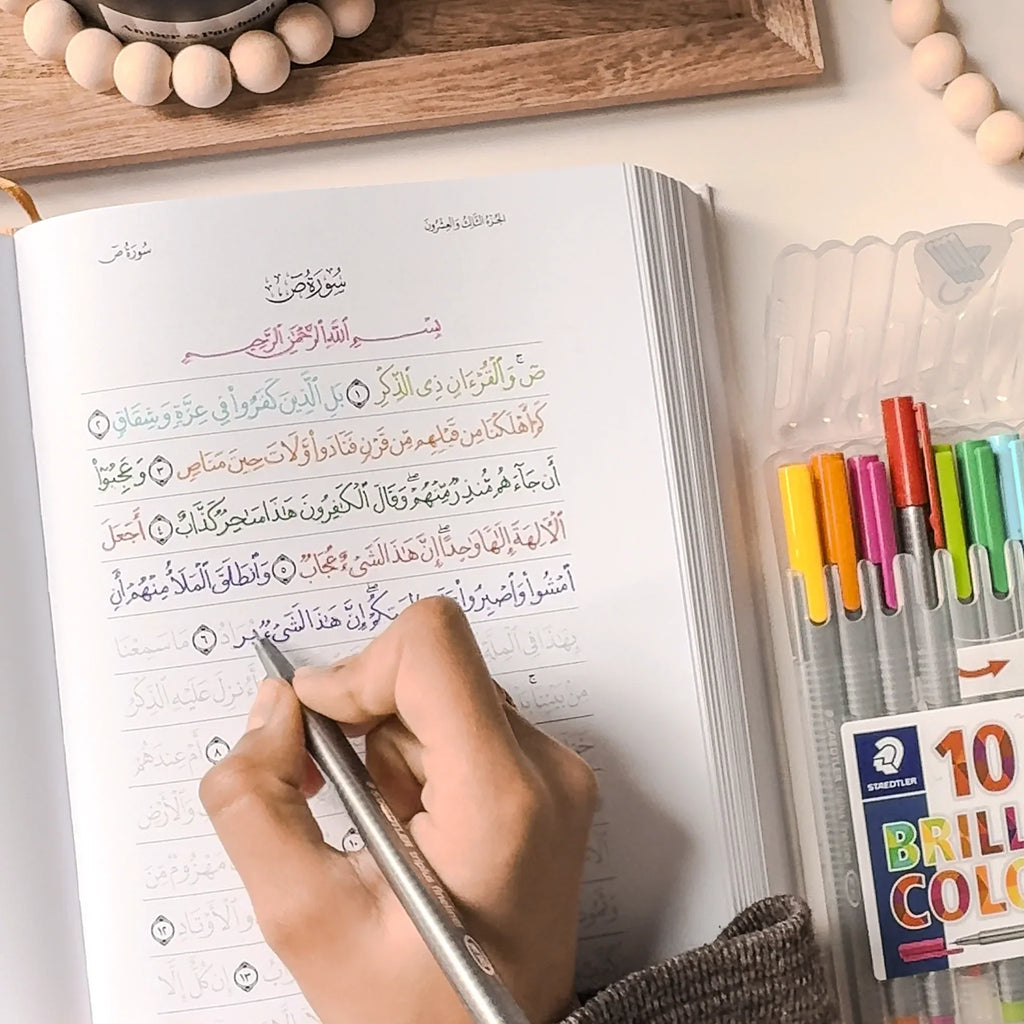 Amber & Patchouli
الجزء الثالث والعشرون
سورة ص
سورة ص
بِسْمِ ٱللَّهِ ٱلرَّحْمَٰنِ ٱلرَّحِيمِ
صٓ ۚ وَٱلْقُرْءَانِ ذِى ٱلذِّكْرِ ١ بَلِ ٱلَّذِينَ كَفَرُوا۟ فِى عِزَّةٍ وَشِقَاقٍ ٢
كَمْ أَهْلَكْنَا مِن قَبْلِهِم مِّن قَرْنٍ فَنَادَوا۟ وَّلَاتَ حِينَ مَنَاصٍ ٣ وَعَجِبُوٓا۟
أَن جَآءَهُم مُّنذِرٌ مِّنْهُمْ ۖ وَقَالَ ٱلْكَٰفِرُونَ هَٰذَا سَٰحِرٌ كَذَّابٌ ٤ أَجَعَلَ
ٱلْءَالِهَةَ إِلَٰهًا وَٰحِدًا ۖ إِنَّ هَٰذَا لَشَىْءٌ عُجَابٌ ٥ وَٱنطَلَقَ ٱلْمَلَأُ مِنْهُمْ أَنِ
ٱمْشُوا۟ وَٱصْبِرُوا۟ إِنَّ هَٰذَا لَشَىْءٌ يُرَادُ ٦ مَا سَمِعْنَا
بِهَٰذَا فِى ٱلْمِلَّةِ
مِنۢ بَيْنِنَا ۚ أَءُنزِلَ عَلَيْهِ ٱلذِّكْرُ
٨ أَمْ عِندَهُمْ
وَٱلْأَرْضِ
١٠
مَهْزُومٌ مِّنَ
ٱلْأَوْتَادِ ١٢
١٣ إِن كُلٌّ إِلَّا
STAEDTLER
10
BRILL
COLO